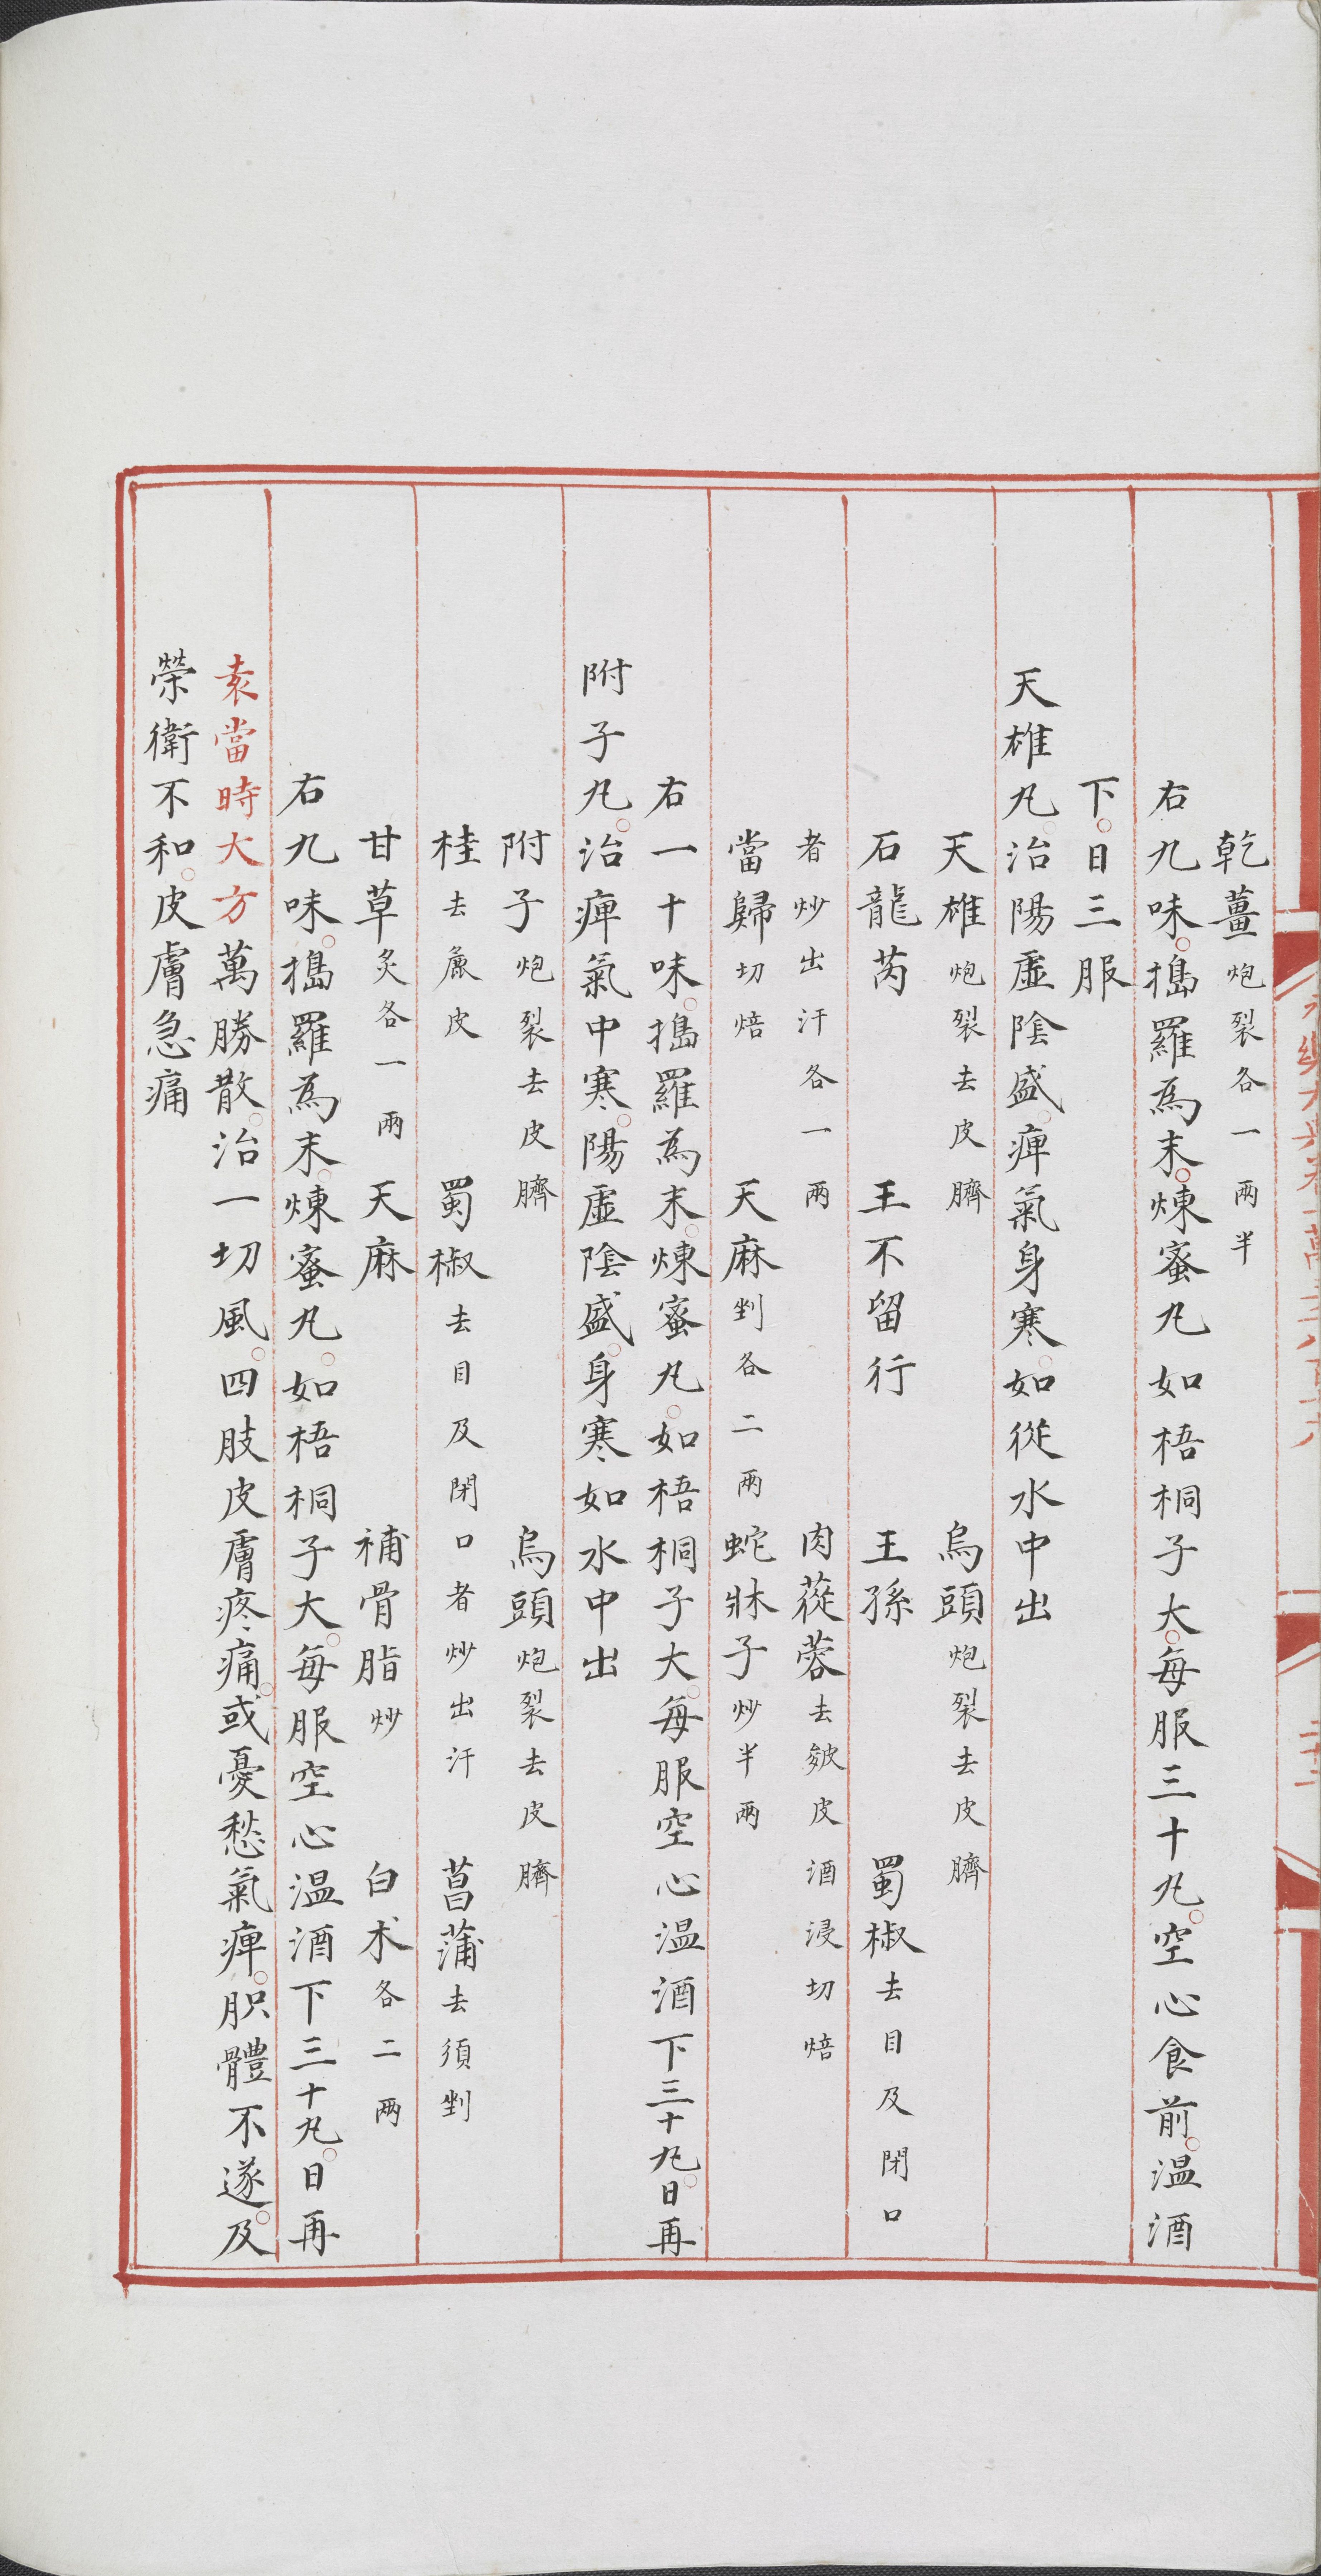 乾薑炮裂各一兩半
右九味。搗羅爲末。煉蜜丸如梧桐子大。每服三十丸。空心食前。温酒
下。日三服
天雄丸。治陽虛陰盛。痺氣身寒。如從水中出
天雄炮裂去皮臍 烏頭炮裂去皮臍
石龍芮 王不留行 王孫 蜀椒去目及閉口
者炒出汗各一兩 肉蓯蓉去皴皮酒浸切焙
當歸切焙 天麻剉各二兩 蛇牀子炒半兩
右一十味。搗羅爲末。煉蜜丸。如梧桐子大。每服空心温酒下三十丸。日再
附子丸。治痺氣中寒。陽虛陰盛。身寒如水中出
附子炮裂去皮臍 烏頭炮裂去皮臍
桂去麄皮 蜀椒去目及閉口者炒出汗 菖蒲去須剉
甘草炙各一兩 天麻 補骨脂炒 白术各二兩
右九味。搗羅爲末。煉蜜丸。如梧桐子大。每服空心温酒下三十丸。日再
袁當時大方萬勝散。治一切風。四肢皮膚疼痛。或憂愁氣痺。肢體不遂。及
榮衛不和。皮膚急痛